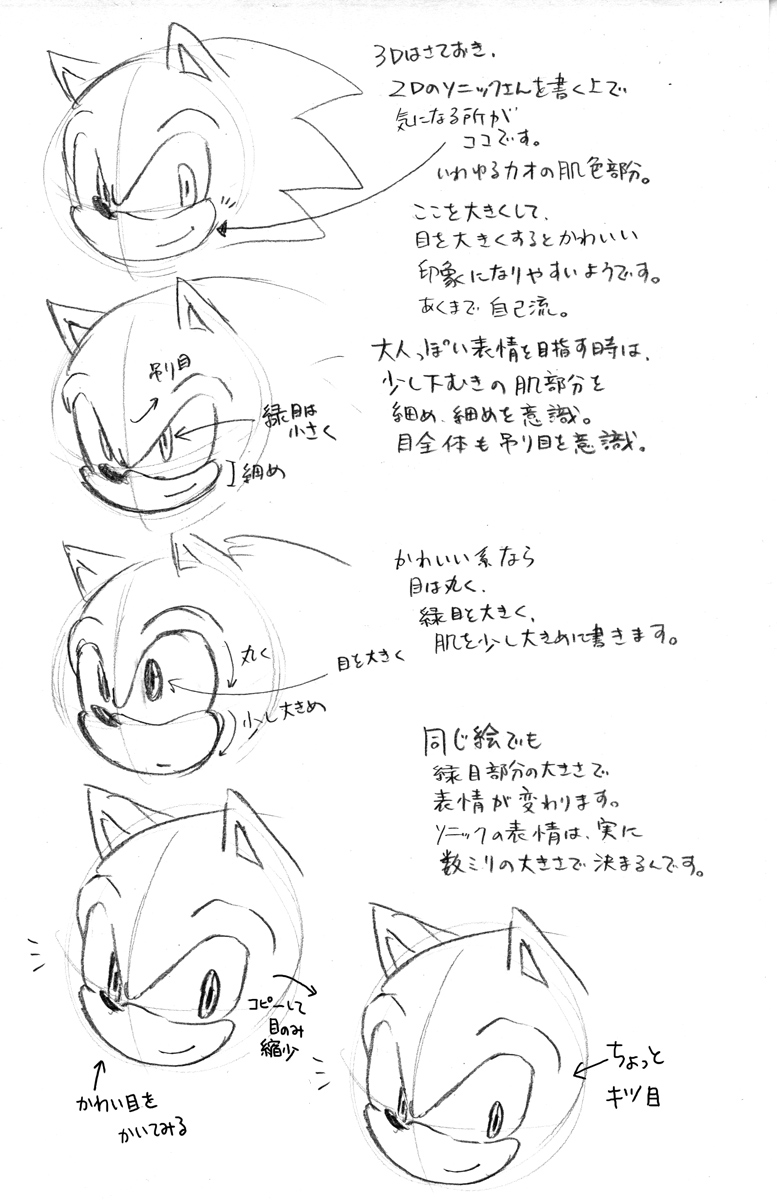 3Dはさておき、
2Dのソニックさんを書く上で
気になる所が
ココです。
いわゆるカオの肌色部分。
ここを大きくして、
目を大きくするとかわいい
印象になりやすいようです。
あくまで自己流。
大人っぽい表情を目指す時は、
少し下むきの肌部分を
細め、細めを意識。
目全体も吊り目を意識。
吊り目
緑目は
小さく
細め
かわいい系なら
目は丸く、
緑目を大きく、
肌を少し大きめに書きます。
丸く
目を大きく
少し大きめ
同じ絵でも
緑目部分の大きさで
表情が変わります。
ソニックの表情は、実に
数ミリの大きさで決まるんです。
コピーして
目のみ
縮少
かわい目を
かいてみる
ちょっと
キツ目